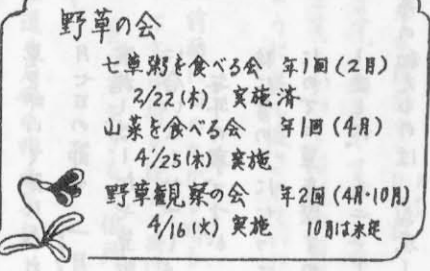 野草の会
七草粥を食べる会 年1回(2月)
2/22(木) 実施済
山菜を食べる会 年1回(4月)
4/25(木) 実施
野草観察の会 年2回(4月・10月)
4/16(火) 実施 10月は来年